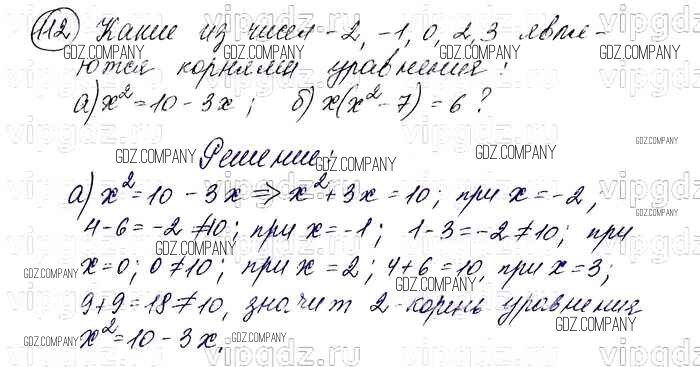 112) Какие из чисел -2, -1, 0, 2, 3 явля-
ются корнями уравнения:
а) x² = 10 - 3x; б) x(x² - 7) = 6?
Решение:
а) x² = 10 - 3x ⇒ x² + 3x = 10; при x = -2,
4 - 6 = -2 ≠ 10; при x = -1; 1 - 3 = -2 ≠ 10; при
x = 0; 0 ≠ 10; при x = 2; 4 + 6 = 10, при x = 3;
9 + 9 = 18 ≠ 10, значит 2 - корень уравнения
x² = 10 - 3x.
GDZ.COMPANY
vipgdz.ru